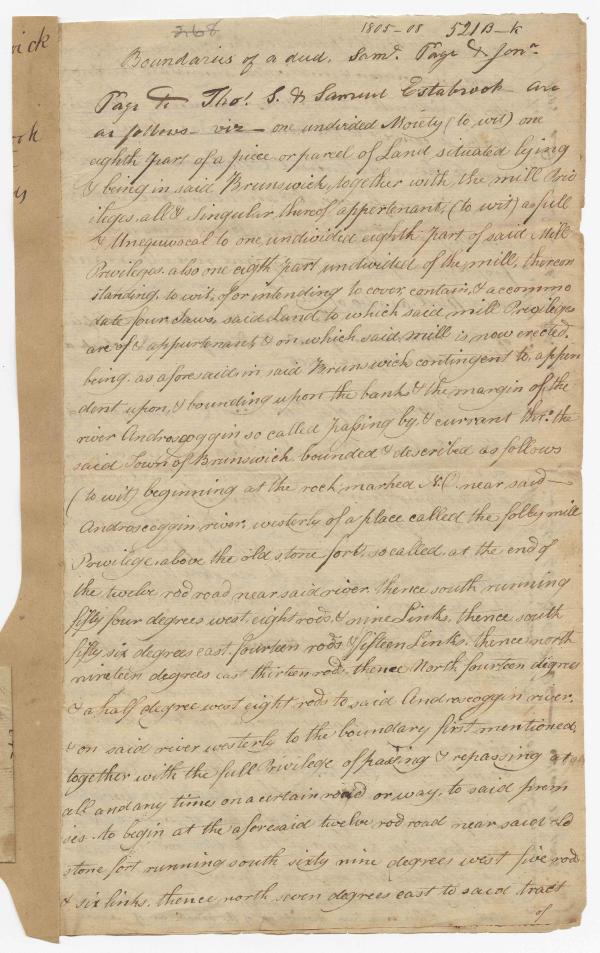 ick
ok
268
1805-08 521B-k
Boundaries of a deed. Sam.d Page & Jon.n
Page to Tho.s S. & Samuel Estabrook are
as follows viz one undivided Moiety (to wit) one
eighth part of a piece or parcel of Land situated lying
& being in said Brunswick, together with the mill Priv
ileges, all & Singular thereof appertenant, (to wit) as full
& Unequivocal to one undivided eighth part of said Mill
Privileges. also one eigth part undivided of the mill, thereon
standing, to wit, of or intending to cover, contain, & accommo
date four Saws, said Land to which said mill Privileges
are of & appurtenant, & on which said mill is now erected.
being, as aforesaid, in said Brunswick contingent to, appen
dent upon, & bounding upon the bank & the margin of the
river Androscoggin so called passing by, & currant thro. the
said Town of Brunswick bounded & described as follows
(to wit) beginning at the rock, marked N: O. near said
Androscoggin river, westerly of a place called the folly mill
Privilege, above the old stone fort, so called, at the end of
the twelve rod road near said river. thence south running
fifty four degrees west, eight rods, & nine Links, thence south
fifty six degrees east, fourteen rods & fifteen Links. thence north
nineteen degrees east thirteen rods, thence North fourteen degrees
& a half degree west eight rods to said Androscoggin river.
& on said river westerly to the boundary first mentioned,
together with the full Privilege of passing & repassing at
all and any times on a certain road or way, to said prem
ises. to begin at the aforesaid twelve rod road near said old
stone fort running south sixty nine degrees west five rod
& six links. thence north seven degrees east to said tract
of